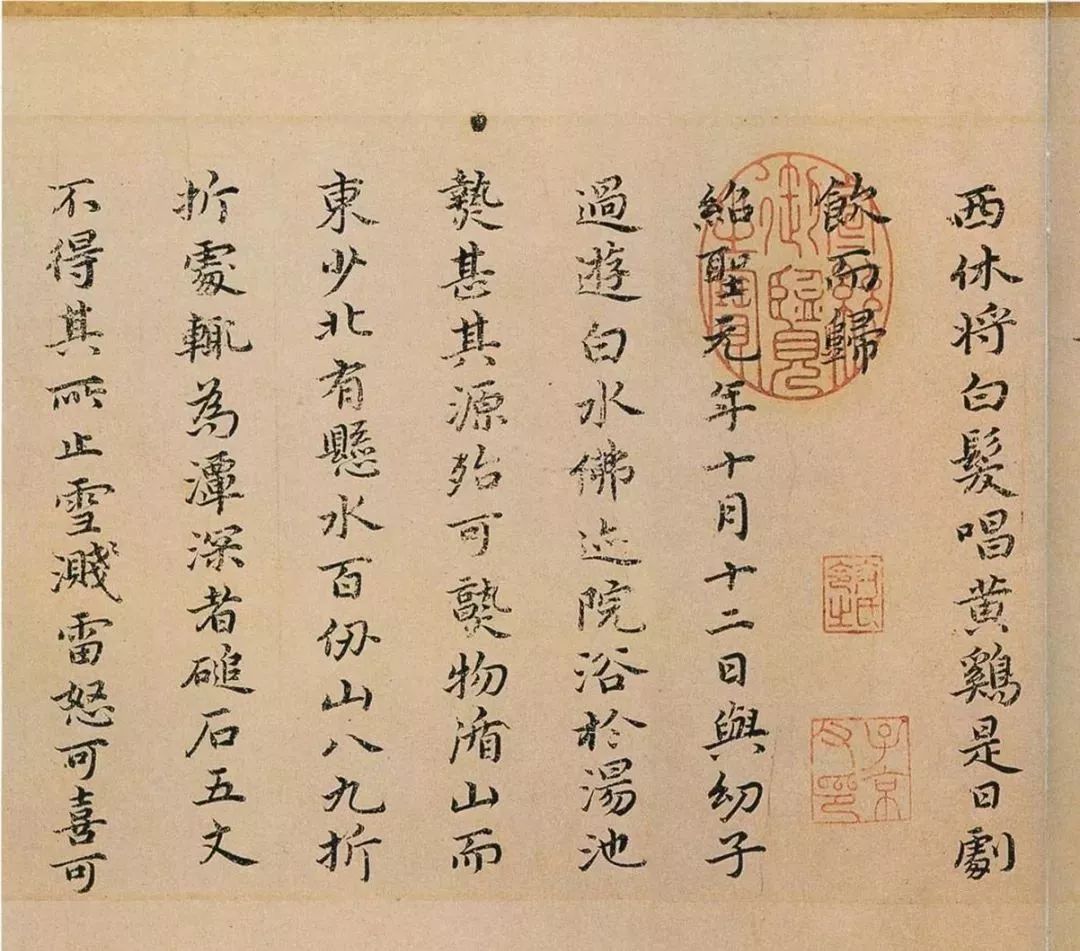 西休将白髮唱黄鷄是日劇
飲而歸
紹聖元年十月十二日與幼子
過遊白水佛迹院浴於湯池
熱甚其源殆可熟物循山而
東少北有懸水百仞山八九折
折處輒為潭深者磓石五丈
不得其所止雪濺雷怒可喜可
子京父印